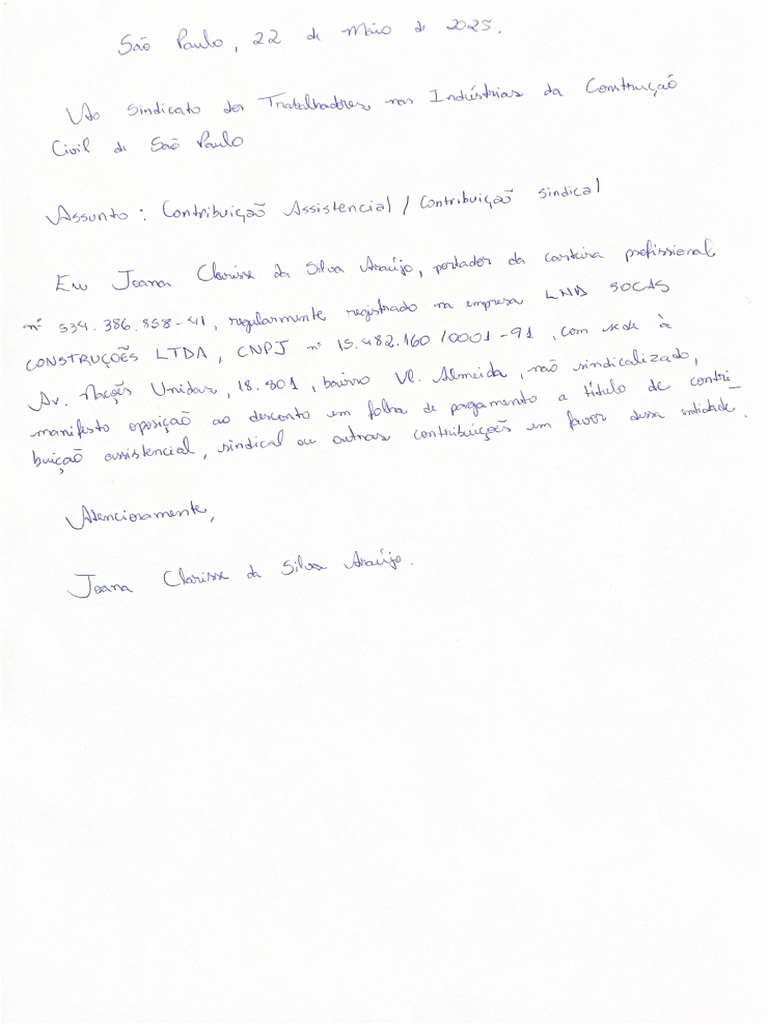 São Paulo, 22 de Maio de 2025.
Ao Sindicato dos Trabalhadores nas Indústrias da Construção
Civil de São Paulo
Assunto: Contribuição Assistencial / Contribuição sindical
Eu Joana Clarisse da Silva Araújo, portador da carteira profissional
nº 534.386.858-41, regularmente registrado na empresa
CONSTRUÇÕES LTDA, CNPJ nº 15.482.160/0001-91, com sede à
Av. Nações Unidas, 18.801, bairro Vl. Almeida, não sindicalizado,
manifesto oposição ao desconto em folha de pagamento a título de contri_
buição assistencial, sindical ou outras contribuições em favor dessa entidade.
Atenciosamente,
Joana Clarisse da Silva Araújo.